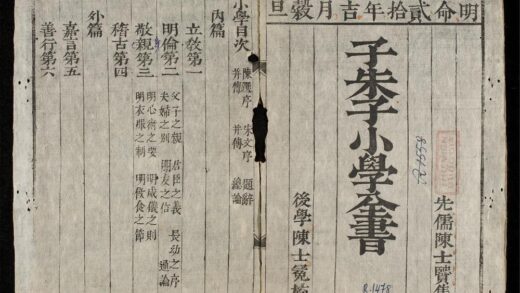 明命貳拾年吉月穀旦
先儒陳士賢集
子朱子小學全書
後學陳士冕
R.1478
小學目次
陳選序 朱文序 題辭
并傳 并傳 總論
內篇
立教第一
明倫第二
父子之親 君臣之義 長幼之序
夫婦之別 朋友之信 通論
敬親第三
明心術之要 明威儀之則
明衣服之制 明飲食之節
稽古第四
外篇
嘉言第五
善行第六